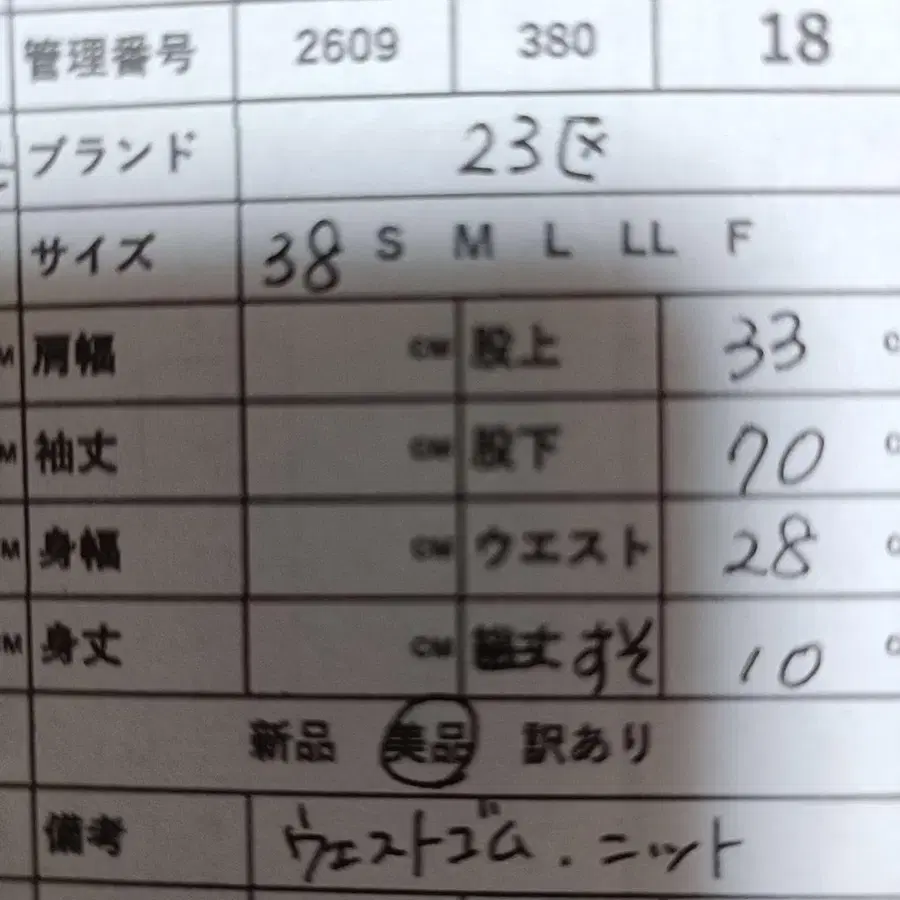 管理番号 2609 380 18
ブランド 23区
サイズ 38 S M L LL F
肩幅 CM 股上 33
袖丈 CM 股下 70
身幅 CM ウエスト 28
身丈 CM すそ 10
新品 美品 訳あり
備考 ウエストゴム.ニット